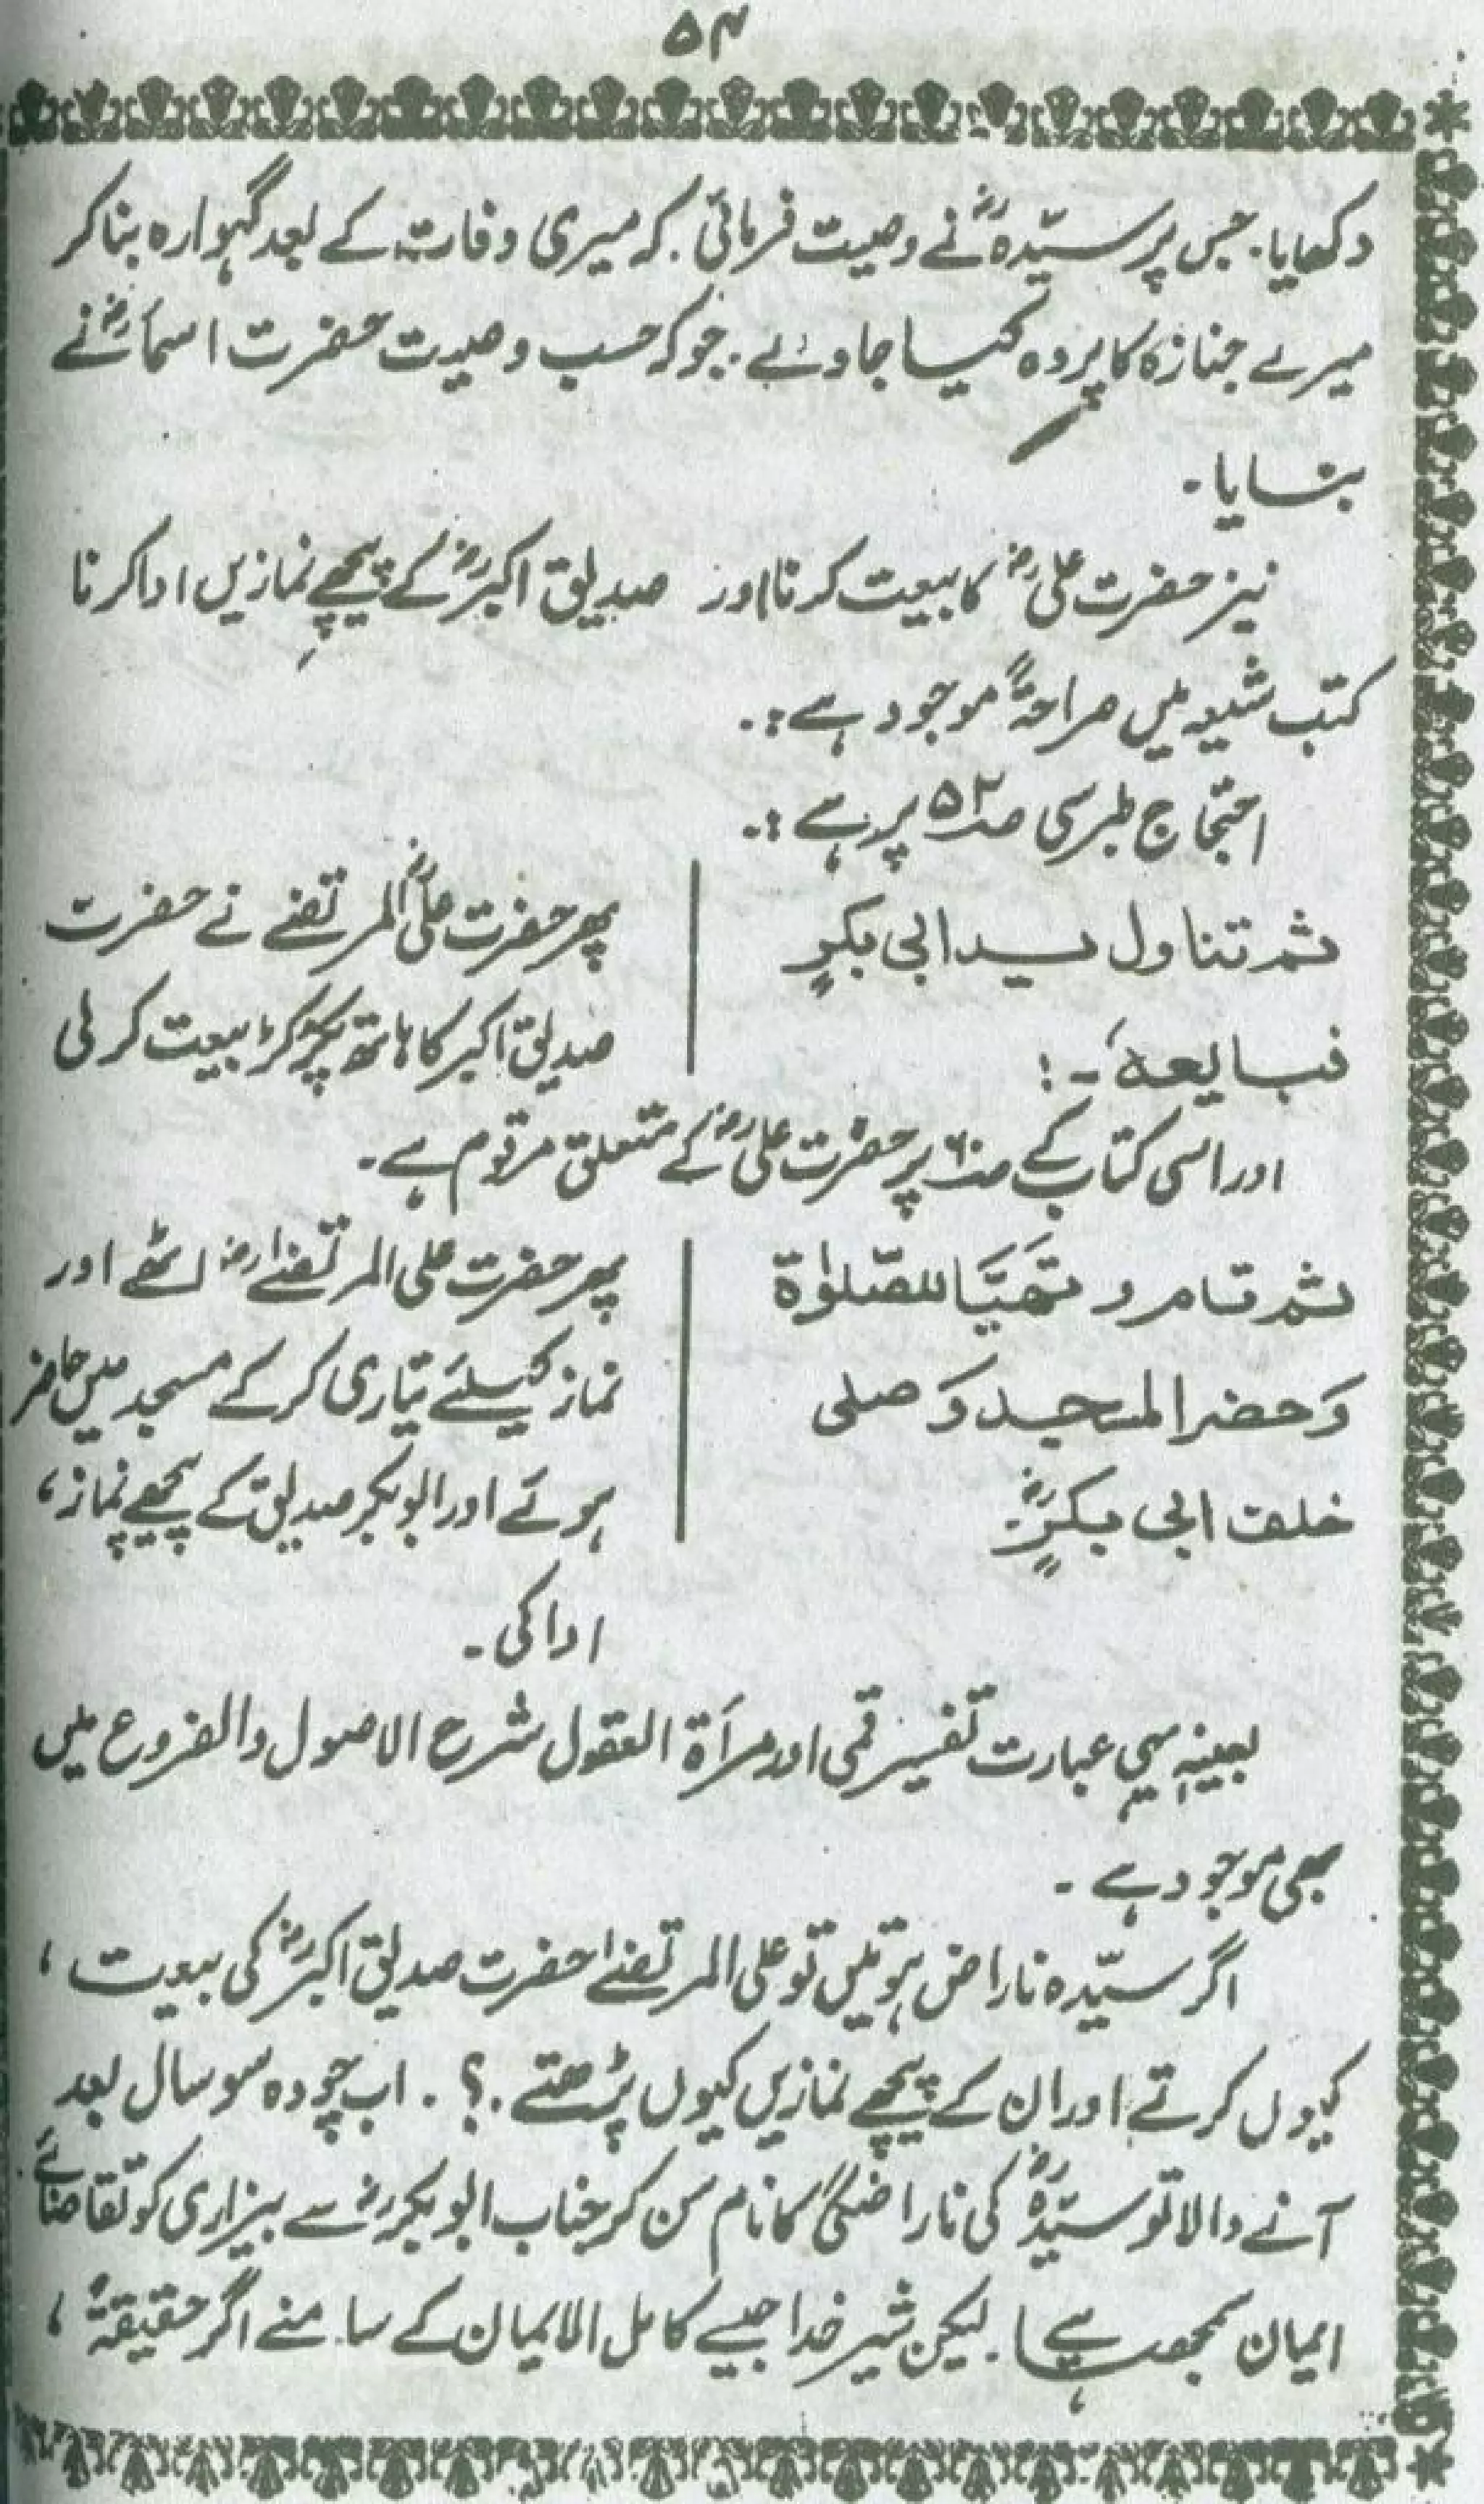 ۵۴
دکھایا. جس پر سیّدہؓ نے وصیت فرمائی. کہ میری وفات کے بعد گہوارہ بنا کر
میرے جنازہ کا پردہ کیا جاوے. جو کہ حسب وصیت حضرت اسماءؓ نے
بنایا.
نیز حضرت علیؓ کا بیعت کرنا اور صدیق اکبرؓ کے پیچھے نمازیں ادا کرنا
کتب شیعہ میں صراحۃً موجود ہے:.
احتجاج طبرسی صـ۵۲ پر ہے:.
ثم تناول ید ابی بکرٍ
فبایعہٗ -:
پھر حضرت علیؓ المرتضےٰ نے حضرت
صدیق اکبر کا ہاتھ پکڑ کر بیعت کر لی
اور اسی کتاب کے صـ۶۰ پر حضرت علیؓ کے متعلق مرقوم ہے.
ثم قام و تَھَیَّا للصّلوٰۃ
وَ حضر المسجد وَ صلی
خلف ابی بکرٍؓ.
پھر حضرت علی المرتضےٰؓ اٹھے اور
نماز کیلئے تیاری کر کے مسجد میں حاضر
ہوئے اور ابوبکر صدیق کے پیچھے نماز،
ادا کی.
بعینہٖ یہی عبارت تفسیر قمی اور مرأۃ العقول شرح الاصول والفروع میں
بھی موجود ہے.
اگر سیّدہ ناراض ہوتیں تو علی المرتضےٰ حضرت صدیق اکبرؓ کی بیعت،
کیوں کرتے اور ان کے پیچھے نمازیں کیوں پڑھتے.؟. اب چودہ سو سال بعد
آنے والا تو سیّدہؓ کی ناراضگی کا نام سن کر جناب ابوبکرؓ سے بیزاری کو تقاضائے
ایمان سمجھتا ہے. لیکن شیر خدا جیسے کامل الایمان کے سامنے اگر حقیقۃً،